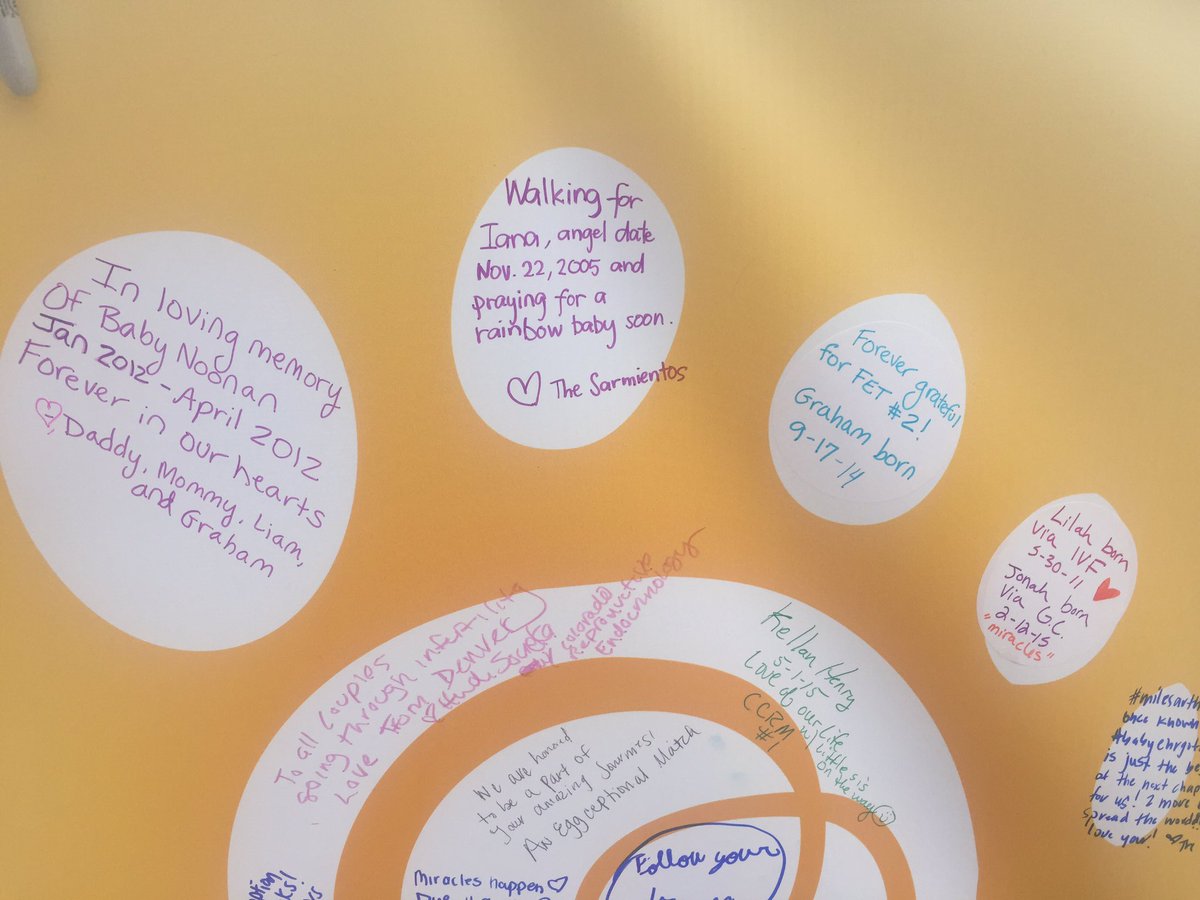 In loving memory
Of Baby Noonan
Jan 2012 - April 2012
Forever in our hearts
Daddy, Mommy, Liam,
and Graham
Walking for
Iana, angel date
Nov. 22, 2005 and
praying for a
rainbow baby soon.
The Sarmientos
Forever grateful
for FET #2!
Graham born
9-17-14
Lilah born
via IVF
5-30-11
Jonah born
via G.C.
2-12-15
"miracles"
To all couples
going through infertility
Love from Denver
Colorado
Reproductive
Endocrinology
Kellan Henry
5-1-15
Love of our life
w/ little sis
on the way
CCRM
#1
We are honored
to be a part of
your amazing journeys!
An Eggceptional Match
Miracles happen
Follow your
#milesarth
once known
#babyehrgott
is just the be
of the next chap
for us! 2 more
spread the word
love you!